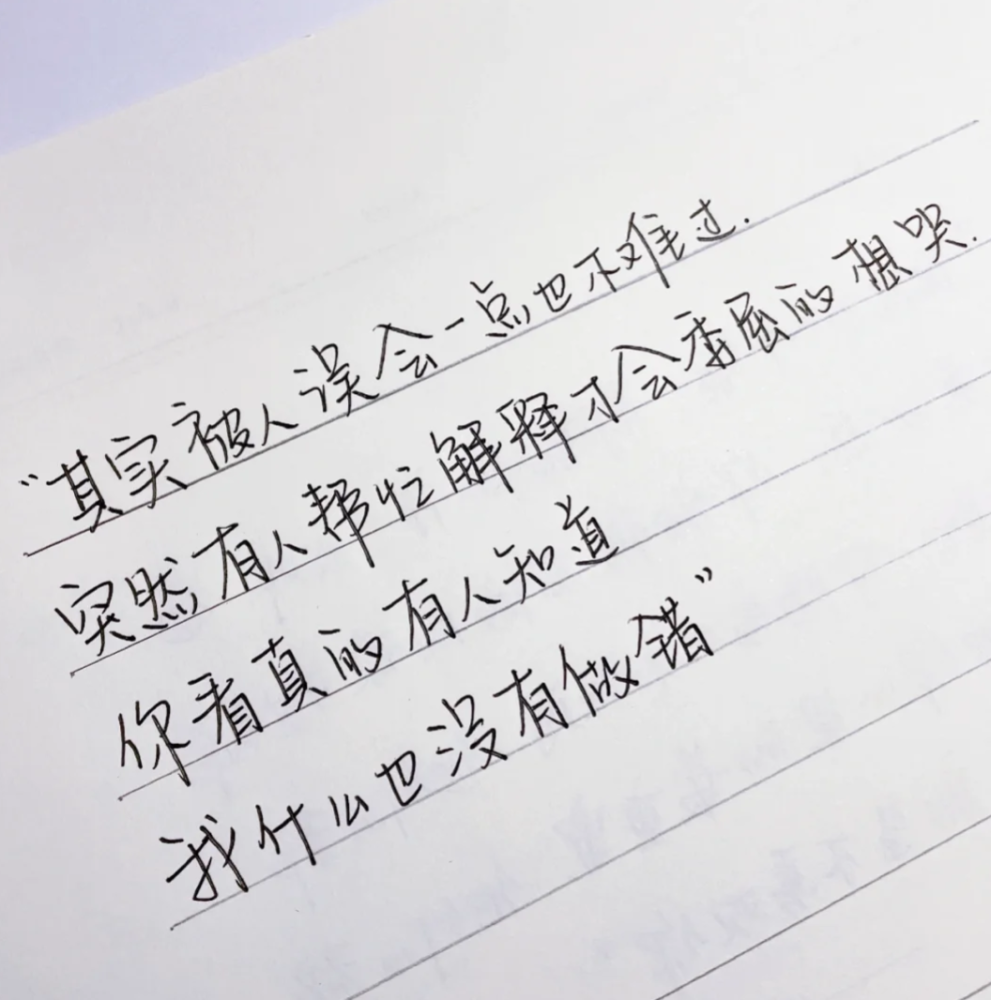 “其实被人误会一点也不难过.
突然有人帮忙解释才会委屈的想哭.
你看真的有人知道
我什么也没有做错”